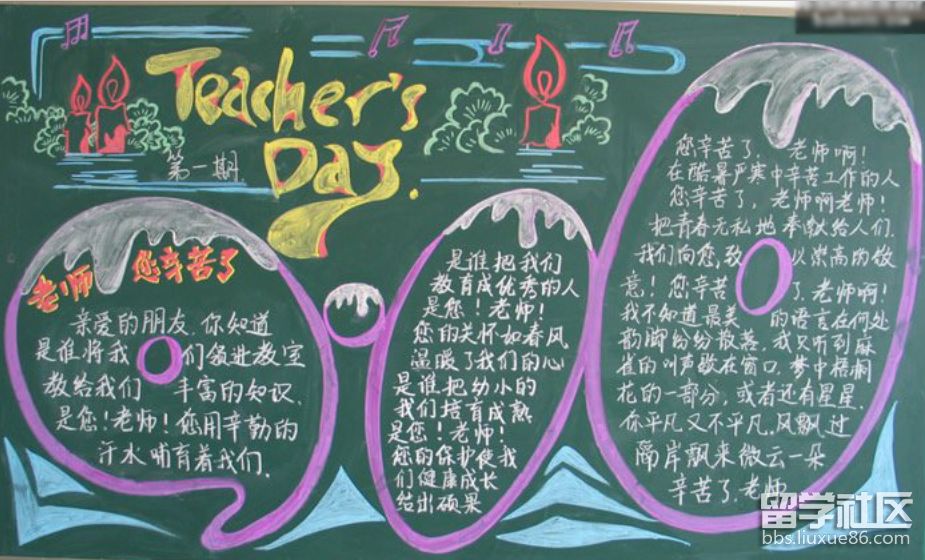 Teacher's
Day.
第一期
老师 您辛苦了
亲爱的朋友.你知道
是谁将我们领进教室
教给我们 丰富的知识.
是您!老师!您用辛勤的
汗水哺育着我们.
是谁把我们
教育成优秀的人
是您!老师!
您的关怀如春风
温暖了我们的心
是谁把幼小的
我们培育成熟
是您!老师!
您的保护使我
们健康成长
结出硕果
您辛苦了, 老师啊!
在酷暑严寒中辛苦工作的人
您辛苦了,老师啊老师!
把青春无私地奉献给人们.
我们向您,致 以崇高的敬
意!您辛苦 了.老师啊!
我不知道最美 的语言在何处
韵脚纷纷散落.我只听到麻
雀的叫声歇在窗口.梦中梧桐
花的一部分,或者还有星星.
你平凡又不平凡.风飘过
隔岸飘来微云一朵
辛苦了.老师
留学社区
bbs.liuxue86.com